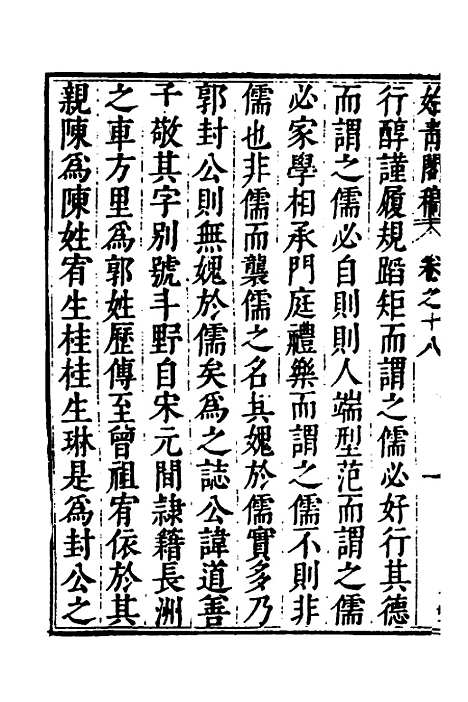 始青閣稿 卷之十八 一
行醇謹履規蹈矩而謂之儒必好行其德
而謂之儒必自則則人端型范而謂之儒
必家學相承門庭禮樂而謂之儒不則非
儒也非儒而襲儒之名其媿於儒實多乃
郭封公則無媿於儒矣為之誌公諱道善
子敬其字別號斗野自宋元間隷籍長洲
之車方里為郭姓歷傳至曾祖宥依於其
親陳為陳姓宥生桂桂生琳是為封公之